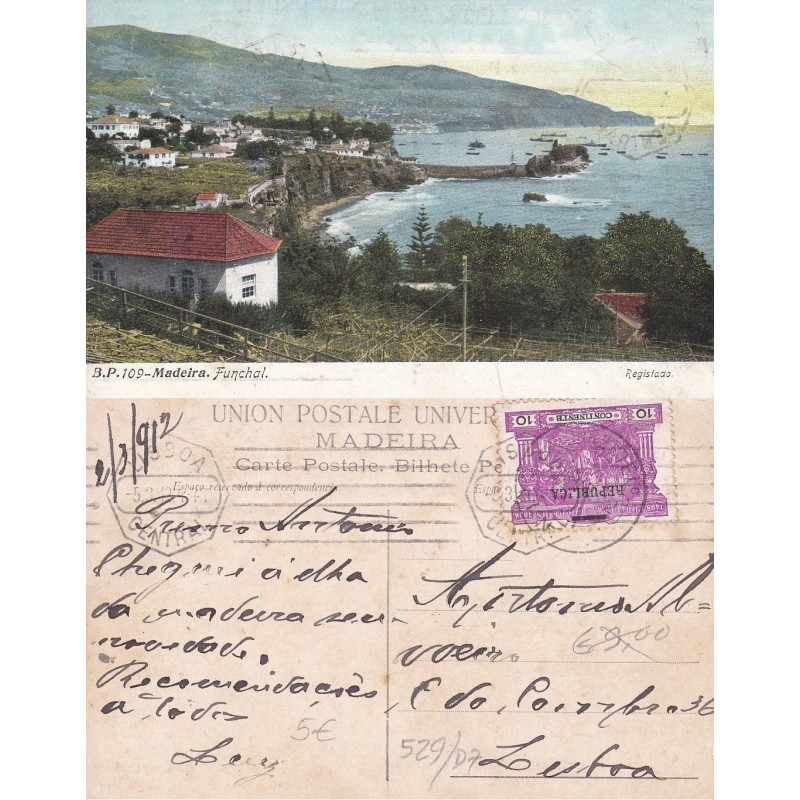 B.P. 109-Madeira. Funchal.
Registado.
UNION POSTALE UNIVER
MADEIRA
Carte Postale. Bilhete Po
Espaço reservado á correspondencia
2/3/912
LISBOA
CENTRAL
10 CONTINENTE 10
REPUBLICA
Primo Antonio
Cheguei á ilha
da madeira sem
novidade.
Recomendações
a todos
Luiz
5€
C do Combro 36
Lisboa
529/07